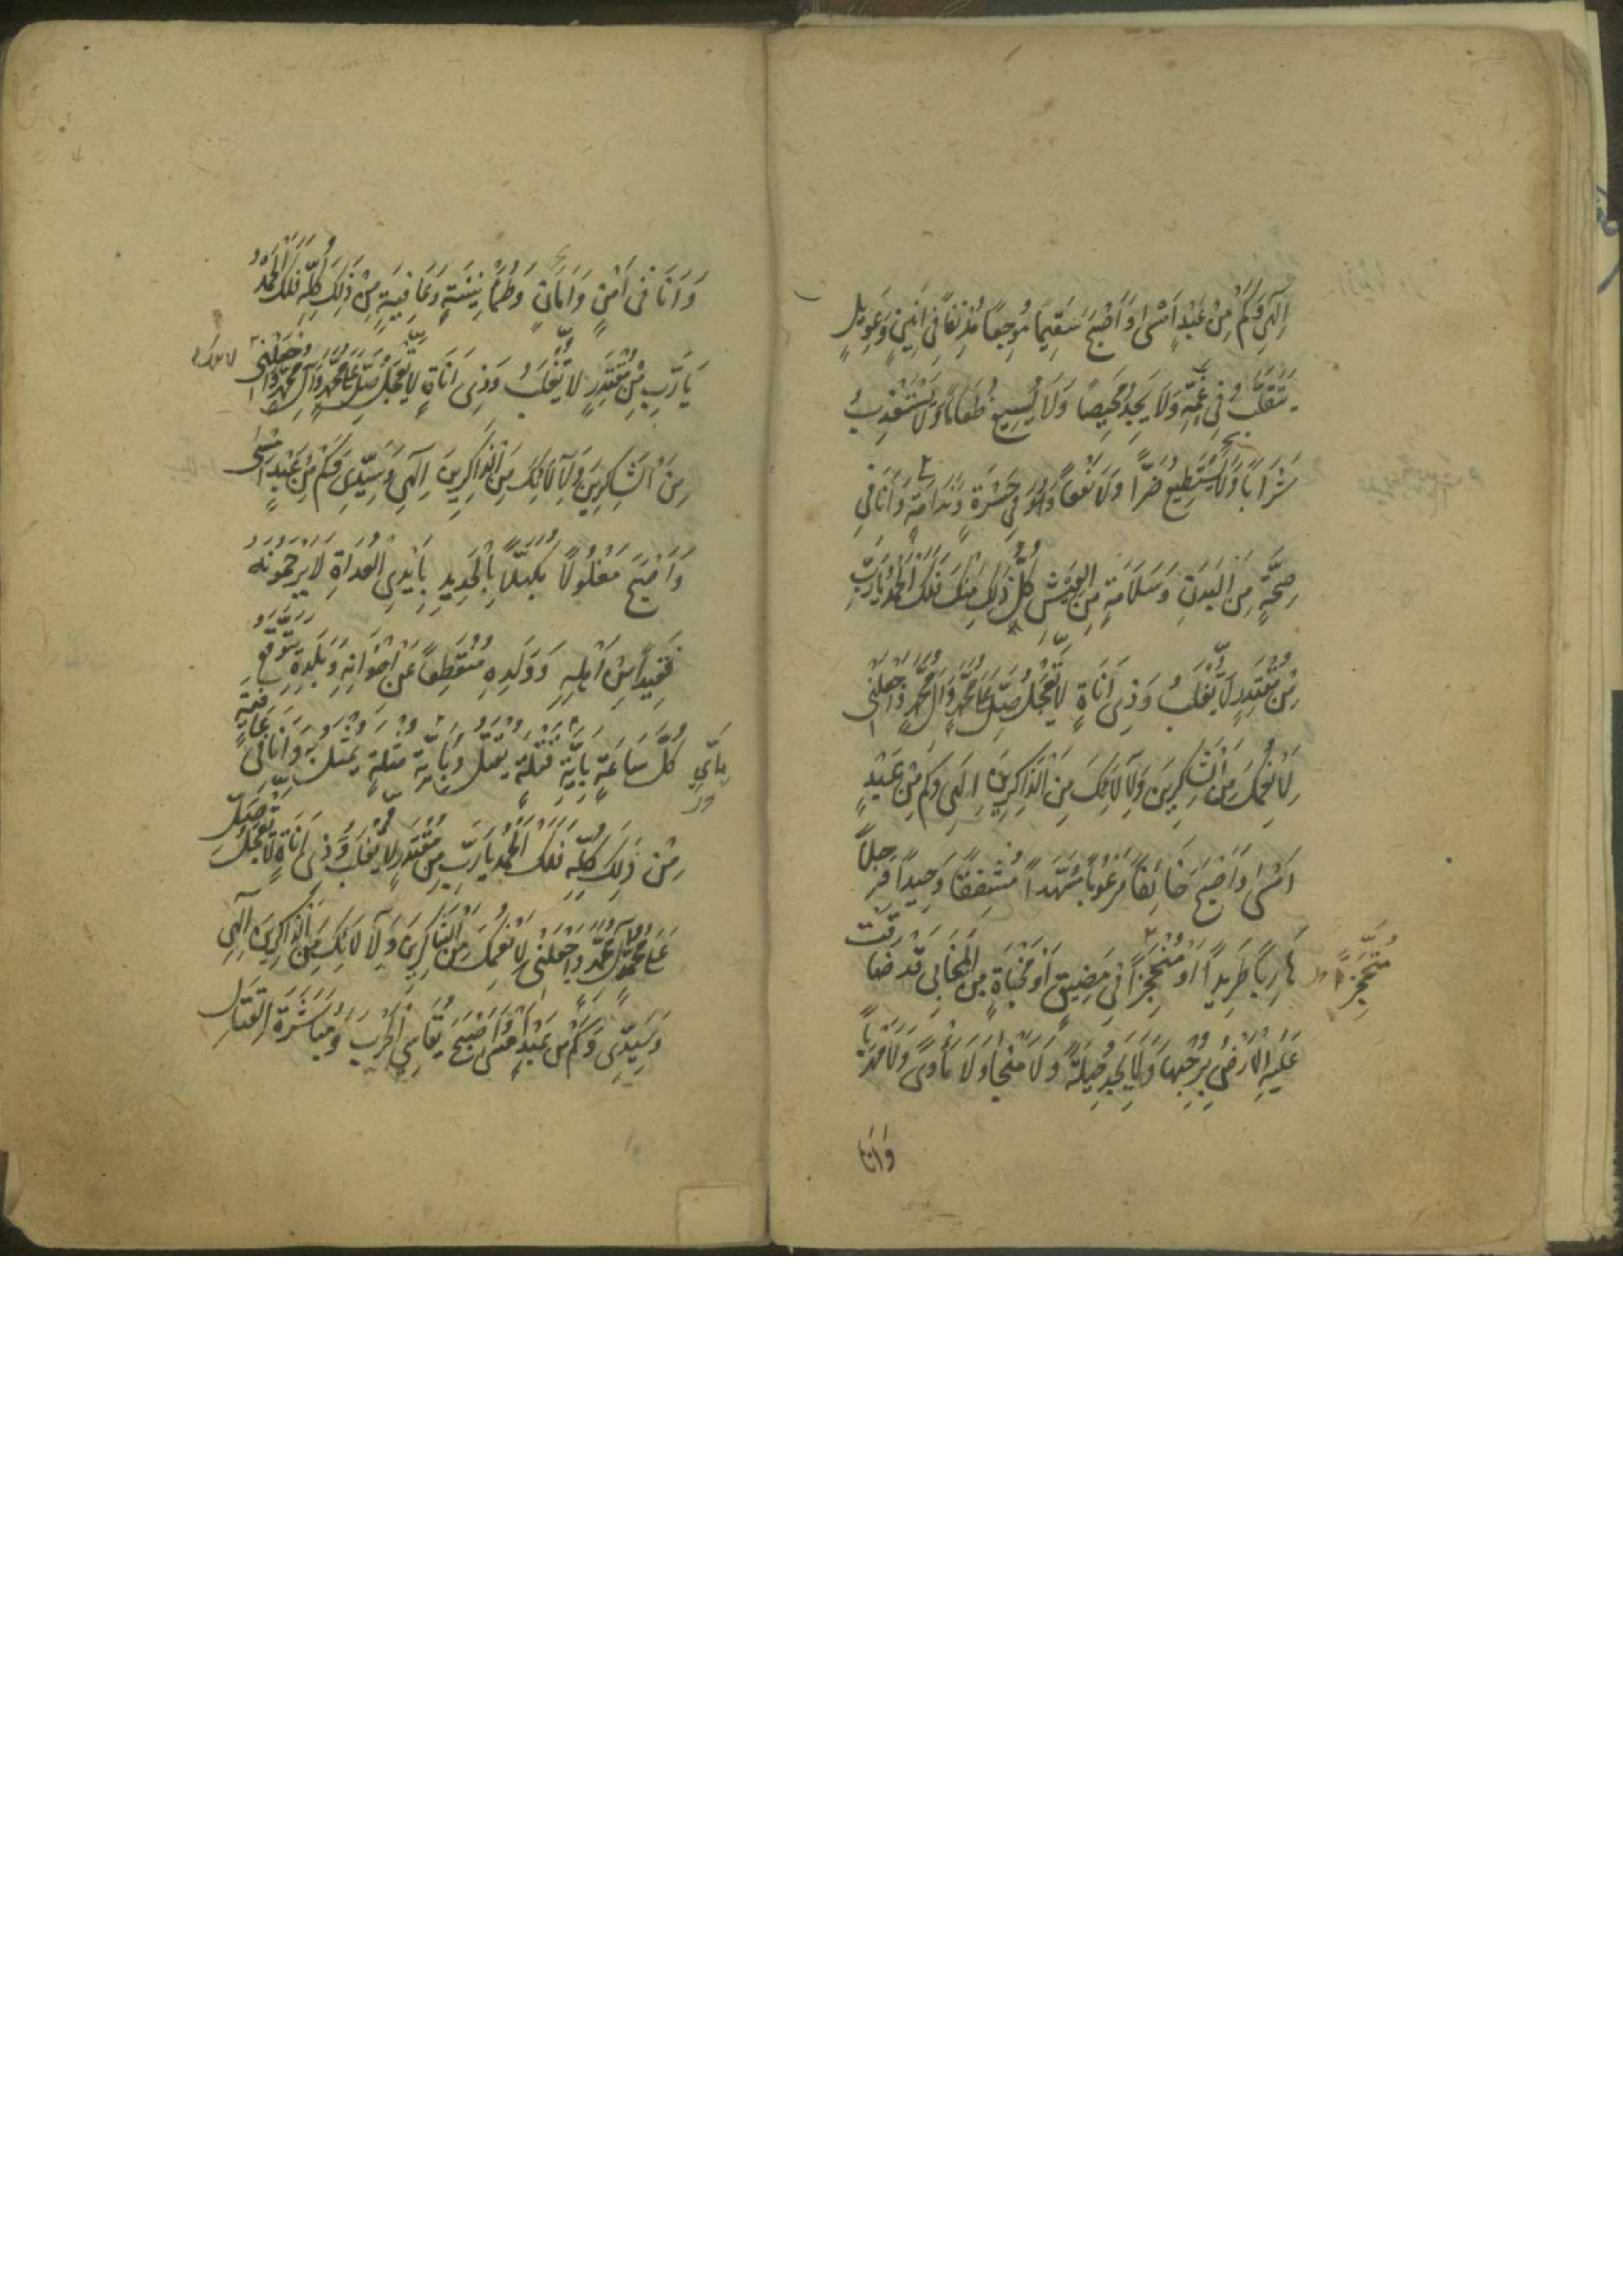 اِلٰهِي وَكَمْ مِنْ عَبْدٍ اَمْسٰى وَاَصْبَحَ سَقِيمًا مُوجِعًا مُدْنِفًا فِي اَنِينٍ وَعَوِيلٍ
يَتَقَلَّبُ فِي غَمِّهِ وَلَا يَجِدُ مَحِيصًا وَلَا يُسِيغُ طَعَامًا وَلَا يَسْتَعْذِبُ
شَرَابًا وَلَا يَسْتَطِيعُ ضَرًّا وَلَا نَفْعًا وَهُوَ فِي حَسْرَةٍ وَنَدَامَةٍ وَاَنَا فِي
صِحَّةٍ مِنَ الْبَدَنِ وَسَلَامَةٍ مِنَ الْعَيْشِ كُلُّ ذٰلِكَ مِنْكَ فَلَكَ الْحَمْدُ يَا رَبِّ
مِنْ مُقْتَدِرٍ لَا يُغْلَبُ وَذِي اَنَاةٍ لَا يَعْجَلُ صَلِّ عَلٰى مُحَمَّدٍ وَاٰلِ مُحَمَّدٍ وَاجْعَلْنِي
لِاَنْعُمِكَ مِنَ الشَّاكِرِينَ وَلِاٰلَائِكَ مِنَ الذَّاكِرِينَ اِلٰهِي وَكَمْ مِنْ عَبْدٍ
اَمْسٰى وَاَصْبَحَ خَائِفًا مَرْعُوبًا مُسَهَّدًا مُشْفِقًا وَحِيدًا وَجِلًا
هَارِبًا طَرِيدًا اَوْ مُنْحَجِزًا فِي مَضِيقٍ اَوْ مَخْبَاَةٍ مِنَ الْمَخَابِي قَدْ ضَاقَتْ
مُتَحَجِّزًا
عَلَيْهِ الْاَرْضُ بِرُحْبِهَا وَلَا يَجِدُ حِيلَةً وَلَا مَنْجَا وَلَا مَاْوًى وَلَا مَهْرَبًا
وَاَنَا
وَاَنَا فِي اَمْنٍ وَاَمَانٍ وَطُمَاْنِينَةٍ وَعَافِيَةٍ مِنْ ذٰلِكَ كُلِّهِ فَلَكَ الْحَمْدُ
يَا رَبِّ مِنْ مُقْتَدِرٍ لَا يُغْلَبُ وَذِي اَنَاةٍ لَا يَعْجَلُ صَلِّ عَلٰى مُحَمَّدٍ وَاٰلِ مُحَمَّدٍ وَاجْعَلْنِي
مِنَ الشَّاكِرِينَ وَلِاٰلَائِكَ مِنَ الذَّاكِرِينَ اِلٰهِي وَسَيِّدِي وَكَمْ مِنْ عَبْدٍ اَمْسٰى
وَاَصْبَحَ مَغْلُولًا مُكَبَّلًا بِالْحَدِيدِ بِاَيْدِي الْعُدَاةِ لَا يَرْحَمُونَهُ
فَقِيدًا مِنْ اَهْلِهِ وَوَلَدِهِ مُنْقَطِعًا عَنْ اِخْوَانِهِ وَبَلَدِهِ يَتَوَقَّعُ
كُلَّ سَاعَةٍ بِاَيَّةِ قَتْلَةٍ يُقْتَلُ وَبِاَيَّةِ مُثْلَةٍ يُمَثَّلُ بِهِ وَاَنَا فِي عَافِيَةٍ
بِاَيِّ
مِنْ ذٰلِكَ كُلِّهِ فَلَكَ الْحَمْدُ يَا رَبِّ مِنْ مُقْتَدِرٍ لَا يُغْلَبُ وَذِي اَنَاةٍ لَا يَعْجَلُ صَلِّ
عَلٰى مُحَمَّدٍ وَاٰلِ مُحَمَّدٍ وَاجْعَلْنِي لِاَنْعُمِكَ مِنَ الشَّاكِرِينَ وَلِاٰلَائِكَ مِنَ الذَّاكِرِينَ اِلٰهِي
وَسَيِّدِي وَكَمْ مِنْ عَبْدٍ اَمْسٰى وَاَصْبَحَ يُقَاسِي الْحَرْبَ وَمُبَاشَرَةَ الْقِتَالِ